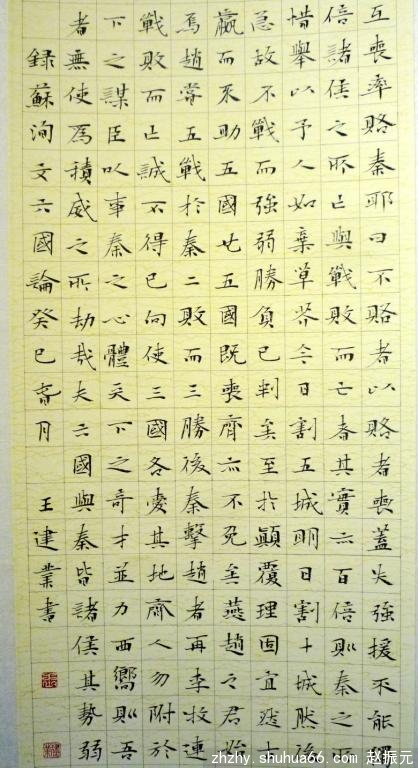 互喪率賂秦耶曰不賂者以賂者喪蓋失強援不能獨
倍諸侯之所亡與戰敗而亡者其實亦百倍則秦之所
惜舉以予人如棄草芥今日割五城明日割十城然後
急故不戰而強弱勝負已判矣至於顛覆理固宜然古
嬴而不助五國也五國既喪齊亦不免矣燕趙之君始
焉趙嘗五戰於秦二敗而三勝後秦擊趙者再李牧連
戰敗而亡誠不得已向使三國各愛其地齊人勿附於
下之謀臣以事秦之心體天下之奇才並力西嚮則吾
者無使為積威之所劫哉夫六國與秦皆諸侯其勢弱
錄蘇洵文六國論癸巳夏月 王建業書
zhzhy.shuhua66.com/赵振元